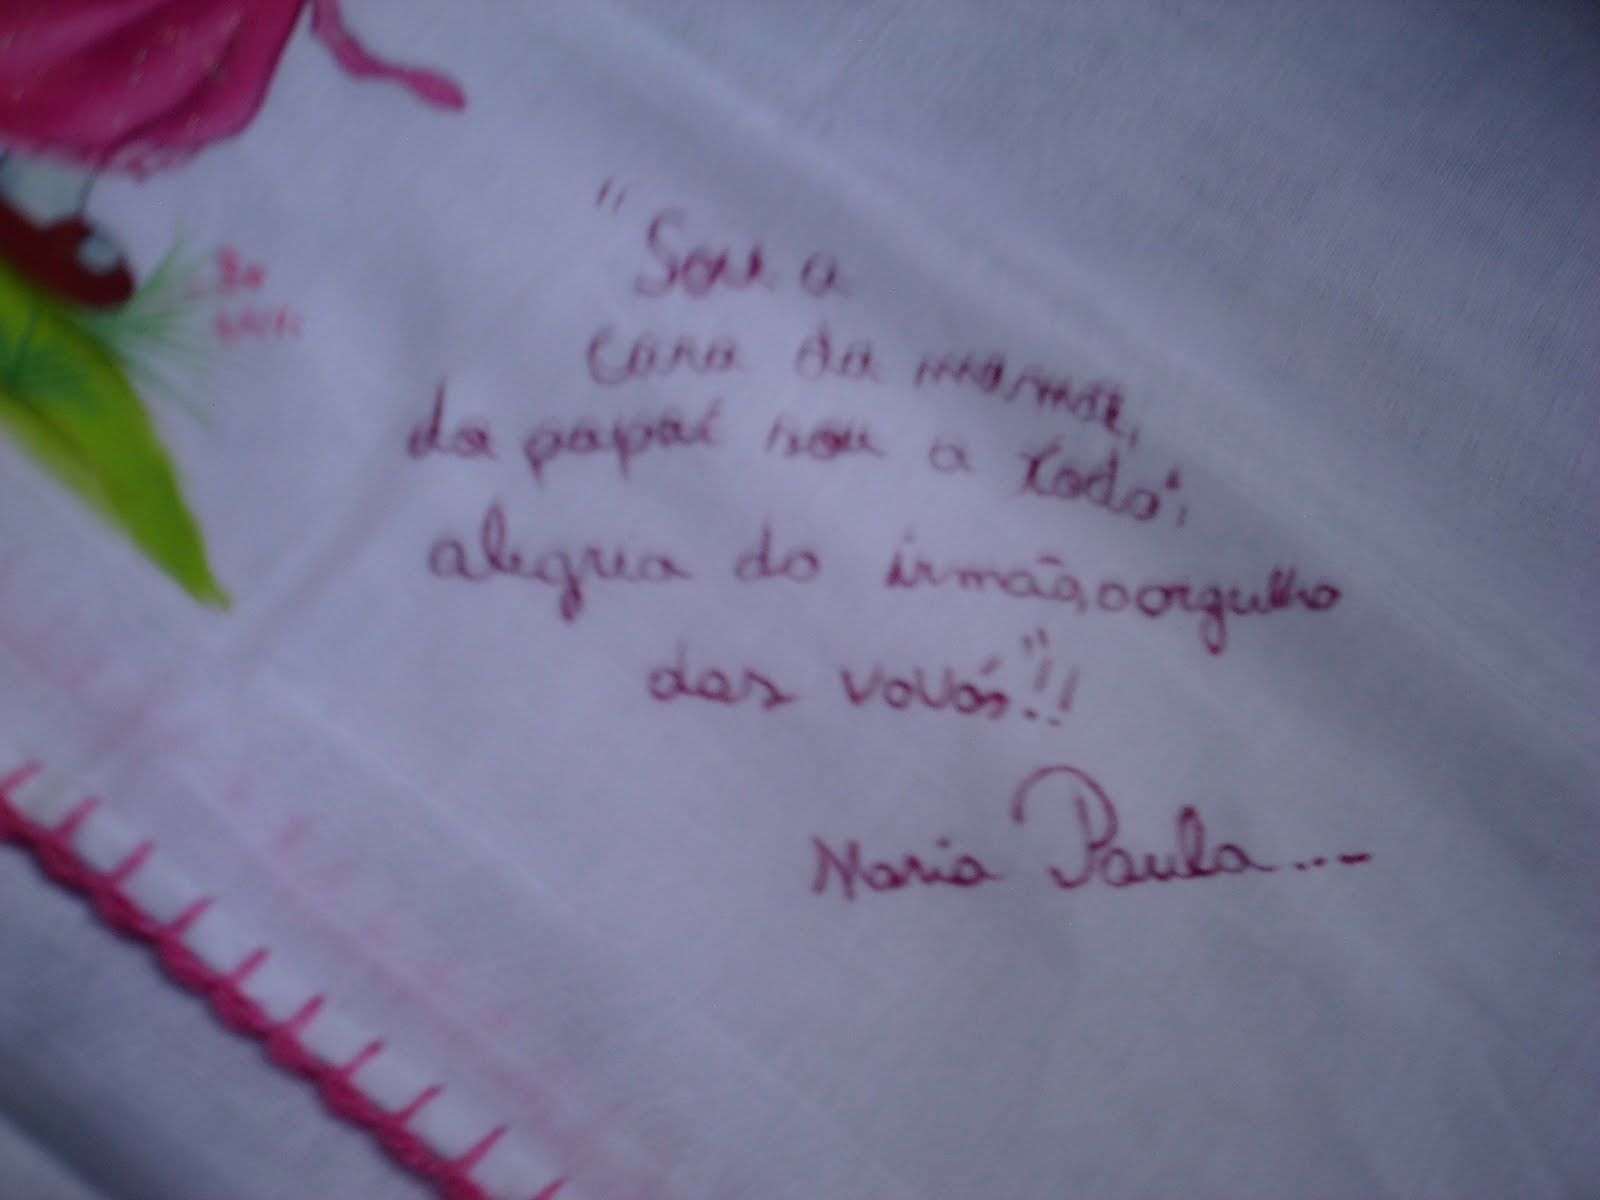 "Sou a
cara da mamãe,
do papai sou a xodó,
alegria do irmão, o orgulho
das vovós"!!
Maria Paula...